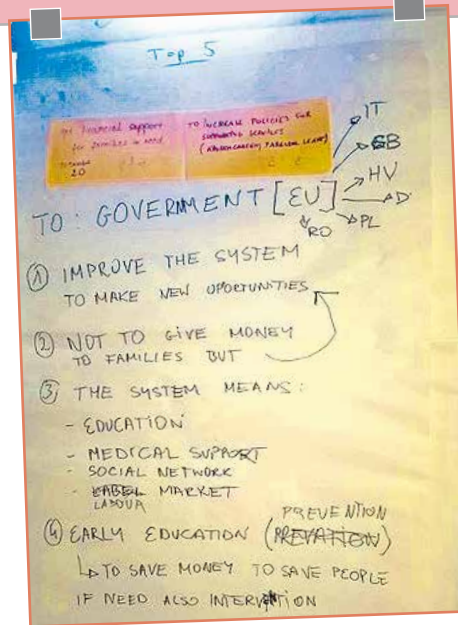 Top 5
financial support
for families in need
20
TO INCREASE POLICIES FOR
SUPPORTING SERVICES
( PARENTAL LEAVE)
IT
GB
HV
AD
PL
RO
TO: GOVERMENT [EU]
① IMPROVE THE SYSTEM
TO MAKE NEW OPORTUNITIES
② NOT TO GIVE MONEY
TO FAMILIES BUT
③ THE SYSTEM MEANS:
- EDUCATION
- MEDICAL SUPPORT
- SOCIAL NETWORK
- LABEL MARKET
LABOUR
PREVENTION
④ EARLY EDUCATION (PREVATION)
↳ TO SAVE MONEY TO SAVE PEOPLE
IF NEED ALSO INTERVATION